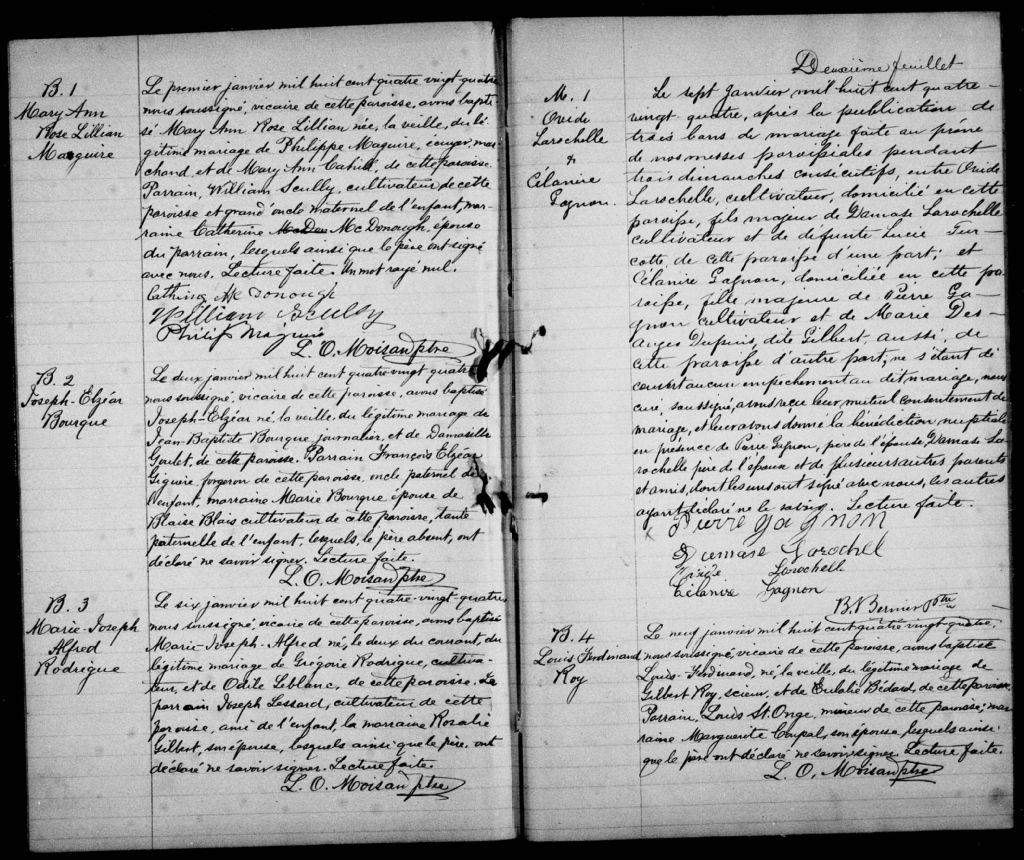 B. 1
Mary Ann
Rose Lillian
Maguire
Le premier janvier mil huit cent quatre vingt-quatre
nous soussigné, vicaire de cette paroisse, avons bapti-
sé Mary Ann Rose Lillian née, la veille, du lé-
gitime mariage de Philippe Maguire, écuyer, mar-
chand, et de Mary Ann Cahill, de cette paroisse.
Parrain, William Scully, cultivateur de cette
paroisse et grand oncle maternel de l'enfant, mar-
raine Catherine Mc Donough, épouse
du parrain, lesquels ainsi que le père ont signé
avec nous. Lecture faite. Un mot rayé nul.
Cathring Mc Donough
William Scully
Philip Maguire
L. O. Moisan ptre
B. 2
Joseph-Elzéar
Bourque
Le deux janvier mil huit cent quatre-vingt quatre
nous soussigné, vicaire de cette paroisse, avons baptisé
Joseph-Elzéar né, la veille, du légitime mariage de
Jean-Baptiste Bourque, journalier, et de Damasille
Goulet, de cette paroisse. Parrain François Elzéar
Giguire, forgeron de cette paroisse, oncle paternel de
l'enfant, marraine Marie Bourque épouse de
Blaise Blais cultivateur de cette paroisse, tante
paternelle de l'enfant, lesquels, le père absent, ont
déclaré ne savoir signer. Lecture faite.
L. O. Moisan ptre
B. 3
Marie-Joseph
Alfred
Rodrigue
Le six janvier mil huit cent quatre-vingt-quatre
nous soussigné, vicaire de cette paroisse, avons baptisé
Marie-Joseph-Alfred né, le deux du courant, du
légitime mariage de Grégoire Rodrigue, cultiva-
teur, et de Odile Leblanc, de cette paroisse. Le
parrain Joseph Lessard, cultivateur de cette
paroisse, ami de l'enfant, la marraine Rosalie
Gilbert, son épouse, lesquels ainsi que le père, ont
déclaré ne savoir signer. Lecture faite.
L. O. Moisan ptre
Deuxième feuillet
M. 1
Ovide
Larochelle
&
Célanire
Gagnon.
Le sept janvier, mil-huit cent quatre-
vingt-quatre, après la publication de
trois bans de mariage faite au prône
de nos messes paroissiales pendant
trois dimanches consécutifs, entre Ovide
Larochelle, cultivateur, domicilié en cette
paroisse, fils majeur de Damase Larochelle
cultivateur et de défunte Lucie Tur-
cotte de cette paroisse d'une part; et
Célanire Gagnon, domiciliée en cette pa-
roisse, fille majeure de Pierre Ga-
gnon cultivateur et de Marie Des-
anges Dupuis, dite Gilbert, aussi, de
cette paroisse d'autre part; ne s'étant dé-
couvert aucun empêchement au dit mariage, nous
curé, soussigné, avons reçu leur mutuel consentement de
mariage, et leur avons donné la bénédiction nuptiale
en présence de Pierre Gagnon, père de l'épouse, Damase La-
rochelle père de l'époux et de plusieurs autres parents
et amis, dont les uns ont signé avec nous, les autres
ayant déclaré ne le savoir. Lecture faite.
Pierre Gagnon
Damase Larochel
Ovide Larochell
Célanire Gagnon
B. Bernier Ptre
B. 4
Louis Ferdinand
Roy
Le neuf janvier mil huit cent quatre vingt-quatre,
nous soussigné, vicaire de cette paroisse, avons baptisé
Louis-Ferdinand, né, la veille, du légitime mariage de
Gilbert Roy, scieur, et de Eulalie Bédard, de cette paroisse
Parrain, Louis St. Onge, mineur de cette paroisse; mar-
raine Marguerite Coupal, son épouse, lesquels ainsi
que le père ont déclaré ne savoir signer. Lecture faite.
L. O. Moisan ptre